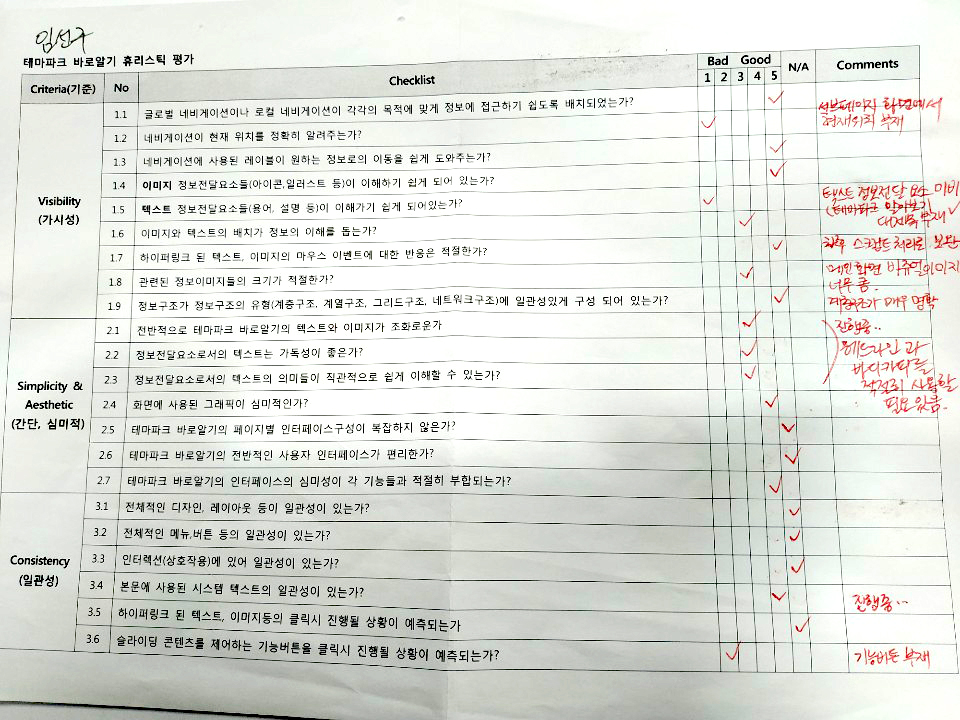 임선구
테마파크 바로알기 휴리스틱 평가
Criteria(기준) No Checklist Bad Good N/A Comments
1 2 3 4 5
Visibility
(가시성)
1.1 글로벌 네비게이션이나 로컬 네비게이션이 각각의 목적에 맞게 정보에 접근하기 쉽도록 배치되었는가? ✓ 서브페이지 화면에서
현재위치 부재
1.2 네비게이션이 현재 위치를 정확히 알려주는가? ✓
1.3 네비게이션에 사용된 레이블이 원하는 정보로의 이동을 쉽게 도와주는가? ✓
1.4 이미지 정보전달요소들(아이콘,일러스트 등)이 이해하기 쉽게 되어 있는가? ✓
1.5 텍스트 정보전달요소들(용어, 설명 등)이 이해가기 쉽게 되어있는가? ✓ 텍스트 정보전달 요소 미비
(테마파크 알아보기
대제목 부재 ✓
1.6 이미지와 텍스트의 배치가 정보의 이해를 돕는가? ✓
1.7 하이퍼링크 된 텍스트, 이미지의 마우스 이벤트에 대한 반응은 적절한가? ✓ 차후 스크립트 처리로 보완
1.8 관련된 정보이미지들의 크기가 적절한가? ✓ 메인화면 비쥬얼이미지
너무 큼.
1.9 정보구조가 정보구조의 유형(계층구조, 계열구조, 그리드구조, 네트워크구조)에 일관성있게 구성 되어 있는가? ✓ 계층구조가 매우 명확
Simplicity &
Aesthetic
(간단, 심미적)
2.1 전반적으로 테마파크 바로알기의 텍스트와 이미지가 조화로운가 ✓ 진행중..
2.2 정보전달요소로서의 텍스트는 가독성이 좋은가? ✓ 헤드라인과
바디카피를
2.3 정보전달요소로서의 텍스트의 의미들이 직관적으로 쉽게 이해할 수 있는가? ✓ 적절히 사용할
필요있음.
2.4 화면에 사용된 그래픽이 심미적인가? ✓
2.5 테마파크 바로알기의 페이지별 인터페이스구성이 복잡하지 않은가? ✓
2.6 테마파크 바로알기의 전반적인 사용자 인터페이스가 편리한가? ✓
2.7 테마파크 바로알기의 인터페이스의 심미성이 각 기능들과 적절히 부합되는가? ✓
Consistency
(일관성)
3.1 전체적인 디자인, 레이아웃 등이 일관성이 있는가? ✓
3.2 전체적인 메뉴,버튼 등의 일관성이 있는가? ✓
3.3 인터렉션(상호작용)에 있어 일관성이 있는가? ✓
3.4 본문에 사용된 시스템 텍스트의 일관성이 있는가? ✓ 진행중..
3.5 하이퍼링크 된 텍스트, 이미지등의 클릭시 진행될 상황이 예측되는가 ✓
3.6 슬라이딩 콘텐츠를 제어하는 기능버튼을 클릭시 진행될 상황이 예측되는가? ✓ 기능버튼 부재